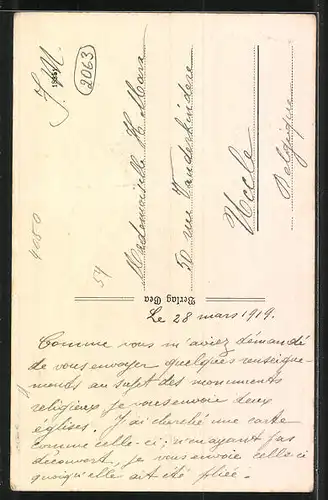 J. M
2063
4050
54
Mademoiselle H. Mara
50 rue Vanderkindere
Uccle
Belgique
Verlag Gea
Le 28 mars 1919.
Comme vous m'aviez demandé
de vous envoyer quelques renseigne-
ments au sujet des monuments
religieux je vous envoie deux
églises. J'ai cherché une carte
comme celle-ci; n'en ayant pas
découvert, je vous envoie celle ci
quoiqu'elle ait été pliée.